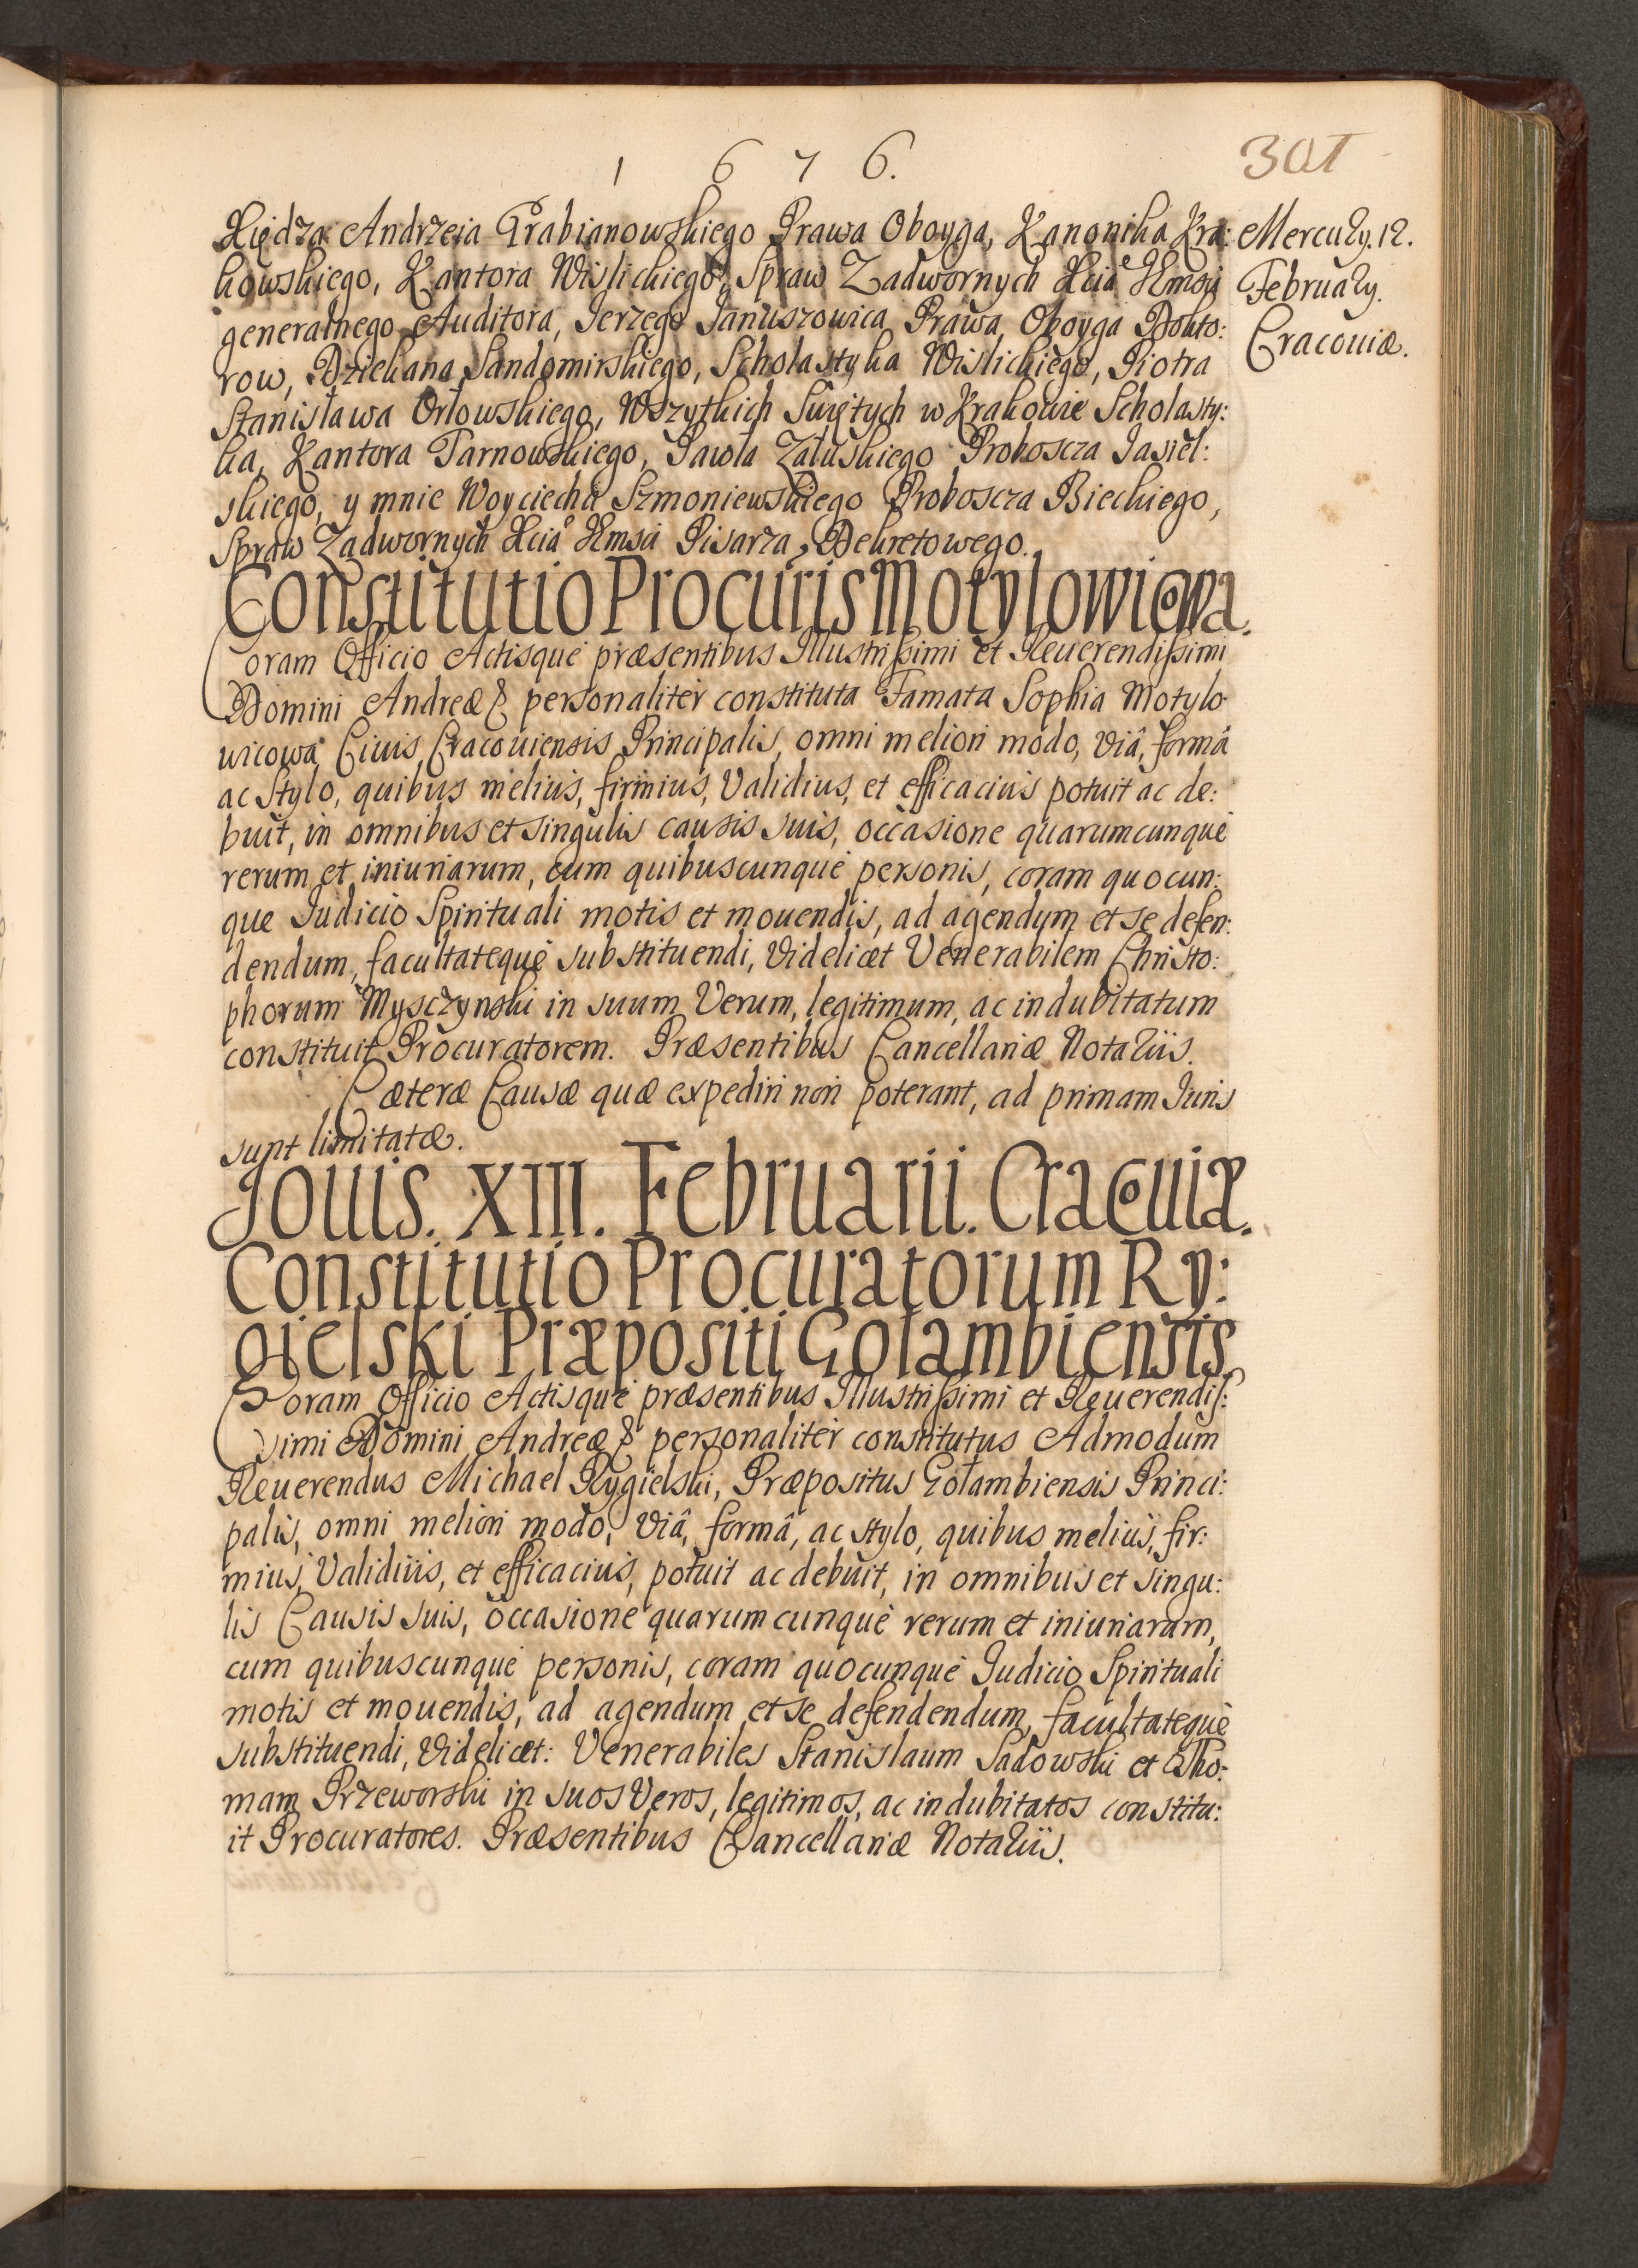 1 6 7 6.
301
Xiędza Andrzeia Grabianowskiego Prawa Oboyga, Kanonika Kra:
kowskiego, Kantora Wislickiego, Spraw Zadwornych Xcia Jmsci
generalnego Auditora, Jerzego Januszowica Prawa Oboyga Dokto:
row, Dziekana Sandomirskiego, Scholastyka Wislickiego, Piotra
Stanisława Orłowskiego, Wszytkich Swiętych w Krakowie Scholasty:
ka, Kantora Tarnowskiego, Pawła Załuskiego Proboscza Jasiel:
skiego, y mnie Woyciecha Szmoniewskiego Proboscza Bieckiego,
Spraw Zadwornych Xcia Jmsci Pisarza Dekretowego.
Mercurÿ. 12.
Februarÿ.
Cracouiæ.
Constitutio Procuris Motylowicowa.
Coram Officio Actisque præsentibus Illustrissimi et Reuerendissimi
Domini Andreæ & personaliter constituta Famata Sophia Motylo
wicowa Ciuis Cracouiensis Principalis, omni meliori modo, viâ, formâ
ac stylo, quibus melius, firmius, validius, et efficacius potuit ac de:
buit, in omnibus et singulis causis suis, occasione quarumcunque
rerum et iniuriarum, cum quibuscunque personis, coram quocun:
que Iudicio Spirituali motis et mouendis, ad agendum et se defen:
dendum, facultateque substituendi, videlicet Venerabilem Christo:
phorum Mysczynski in suum verum, legitimum, ac indubitatum
constituit Procuratorem. Præsentibus Cancellariæ Notariis.
Cæteræ Causæ quæ expediri non poterant, ad primam Iuris
sunt limitatæ.
Jouis. XIII. Februarii. Cracouiæ.
Constitutio Procuratorum Ry:
gielski Præpositi Gołambiensis.
Coram Officio Actisque præsentibus Illustrissimi et Reuerendis:
simi Domini Andreæ & personaliter constitutus Admodum
Reuerendus Michael Rygielski, Præpositus Gołambiensis Princi:
palis, omni meliori modo, viâ, formâ, ac stylo, quibus melius, fir:
mius, validius, et efficacius, potuit ac debuit, in omnibus et singu:
lis Causis suis, occasione quarumcunque rerum et iniuriarum,
cum quibuscunque personis, coram quocunque Iudicio Spirituali
motis et mouendis, ad agendum et se defendendum, facultateque
substituendi, videlicet: Venerabiles Stanislaum Sadowski et Tho:
mam Przeworski in suos veros, legitimos, ac indubitatos constitu:
it Procuratores. Præsentibus Cancellariæ Notariis.